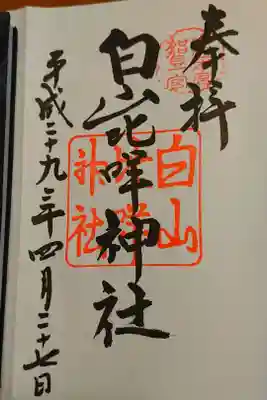 奉拝
白山比咩神社
白山
比咩
神社
平成二十九年四月二十七日